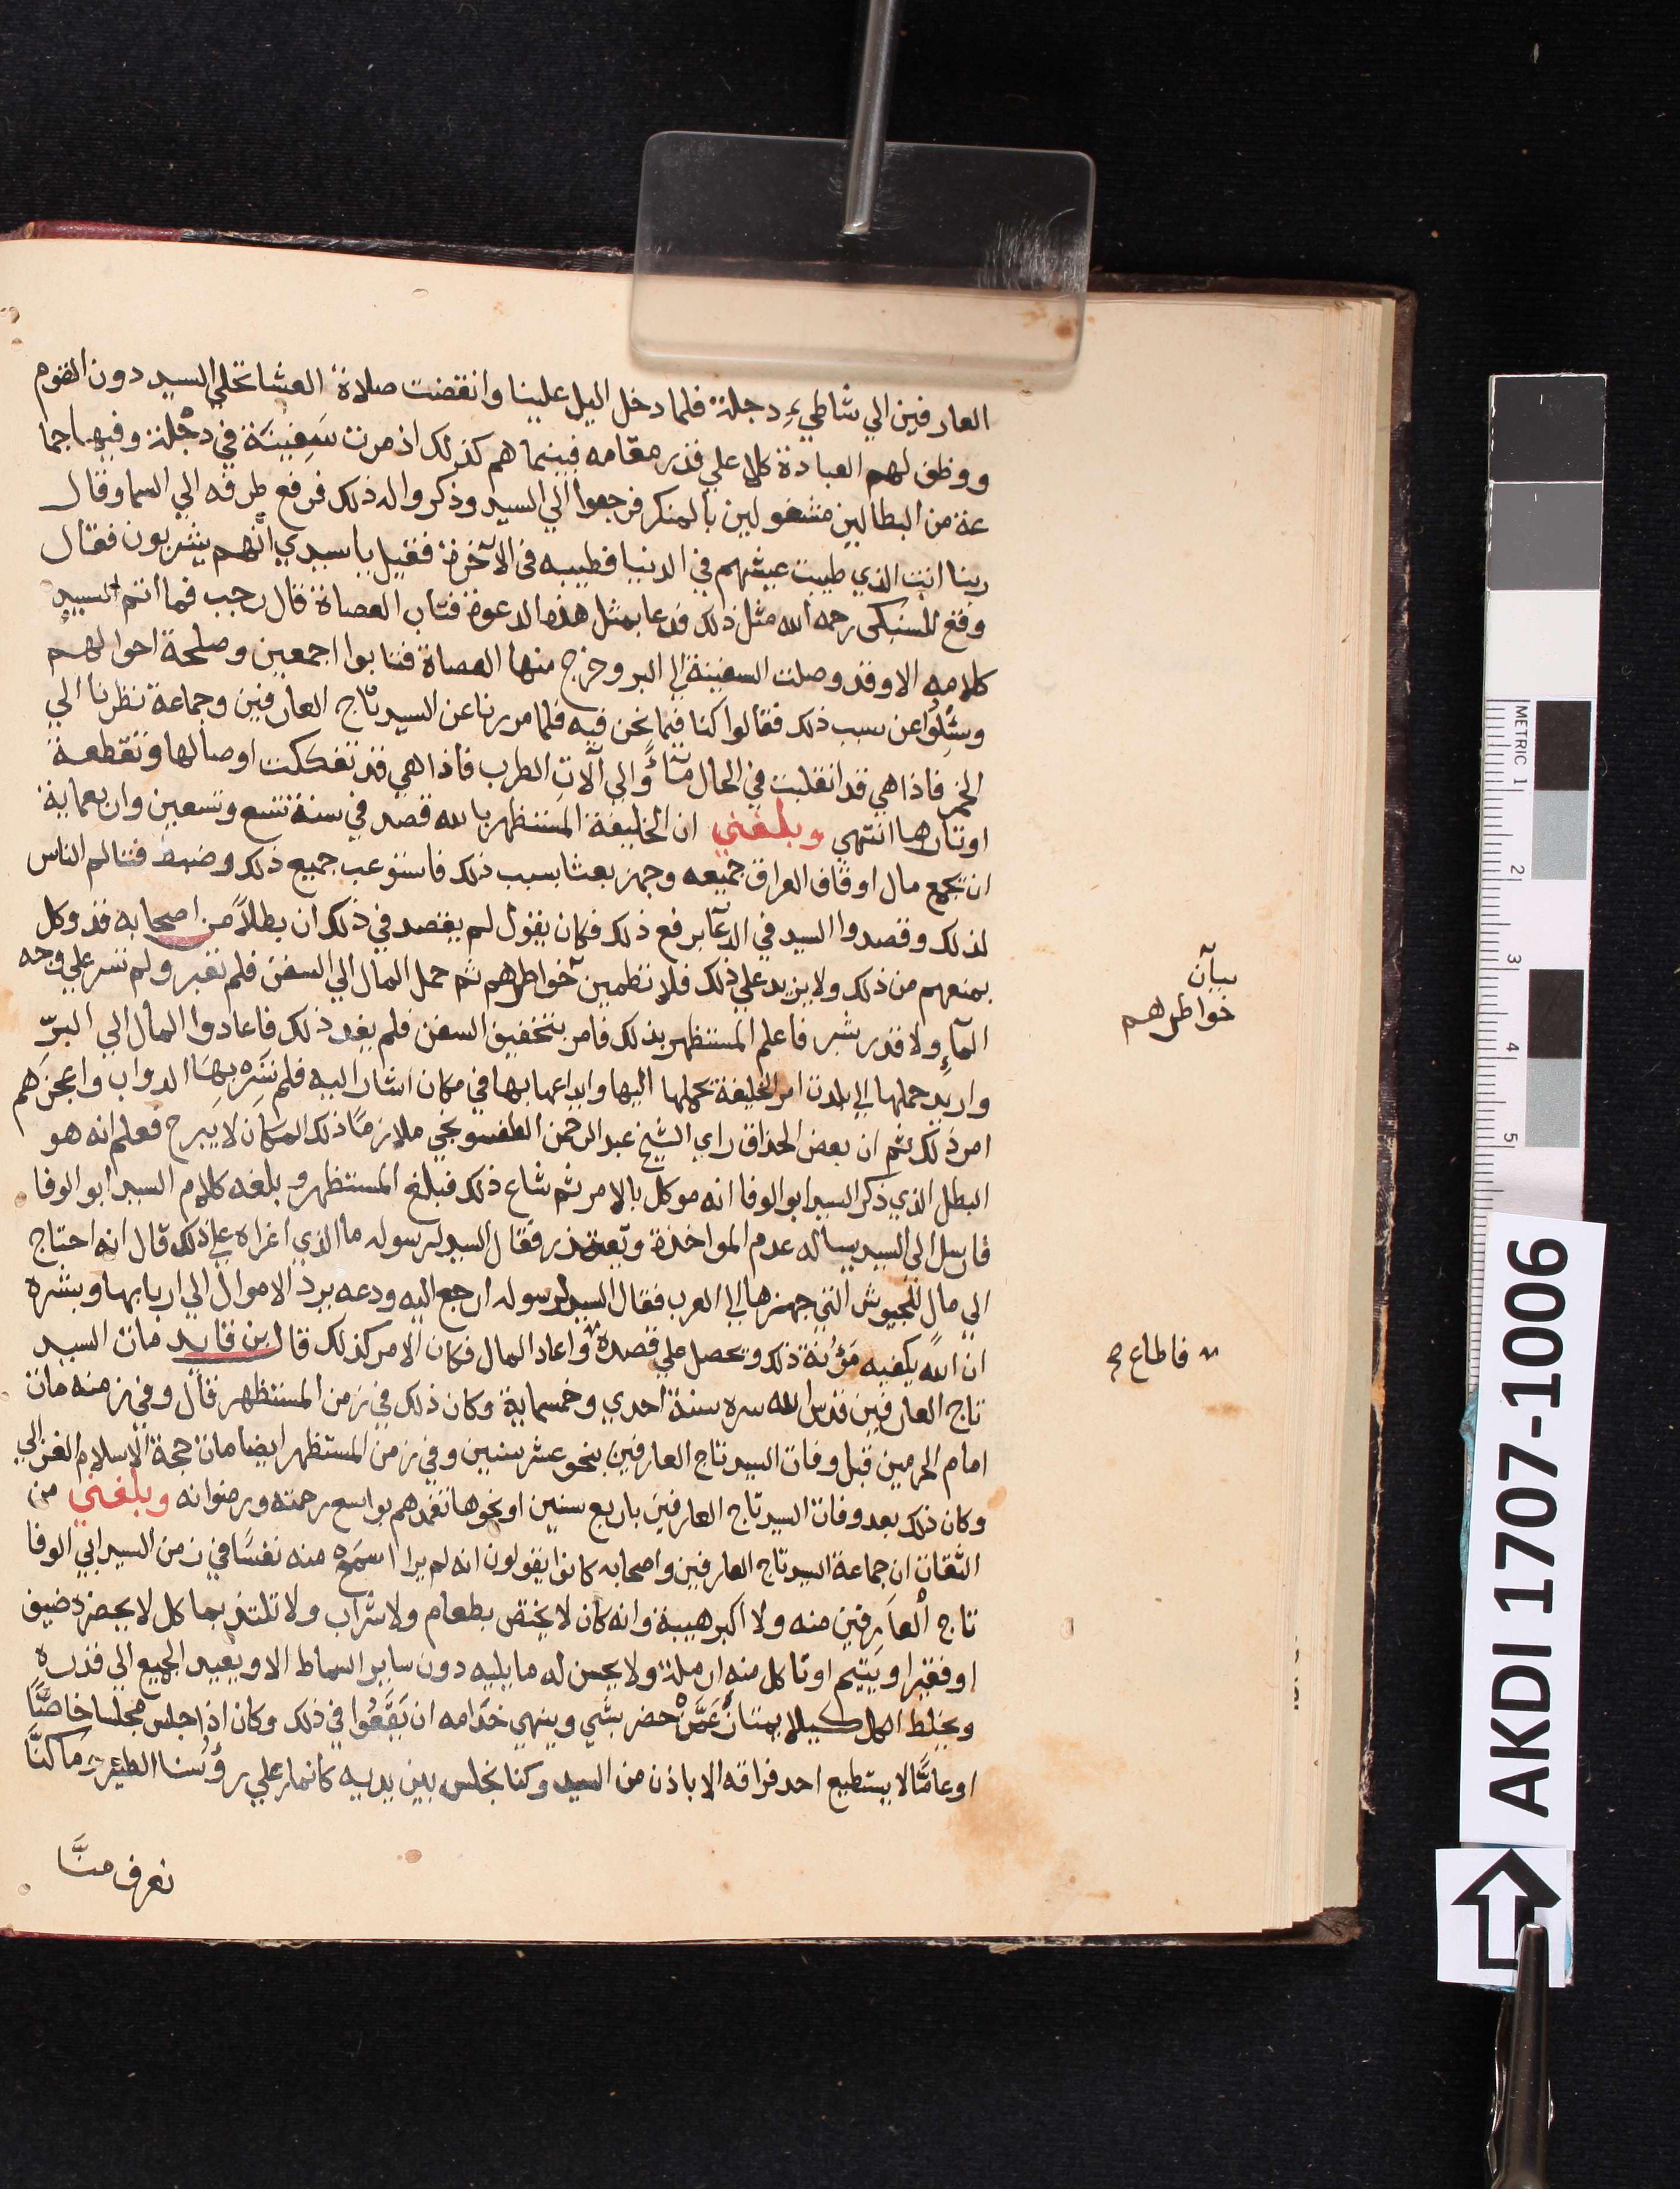 العارفين الي شاطيء دجلة فلما دخل اليل علينا وانقضت صلاة العشا تخلي السيد دون القوم
ووظف لهم العبادة كلا علي قدر مقامه فبينما هم كذلك اذ مرت سَفِينَة في دجْلة وفيها جما
عة من البطالين مشغولين بالمنكر فرجعوا الي السيد وذكروا له ذلك فرفع طرفه الي السما وقال
ربنا انت الذي طيبت عيشهم في الدنيا فطيبه في الآخرة فقيل يا سيدي انهم يشربون فقال
وقع للسبكى رحمه الله مثل ذلك فدعا بمثل هذه الدعوة فتاب العصاة قال رجب فما اتم السيد
كلامه الا وقد وصلت السفينة الي البر وخرج منها العصاة فتابوا اجمعين وصلحة احوالهم
وسُئِلُوا عن سبب ذلك فقالوا كنا فيما نحن فيه فلما مررنا عن السيد تاج العارفين وجماعة نظرنا الي
الخمر فاذا هي قد انقلبت في الحال مآءً والي آلات الطرب فاذا هي قد تفككت اوصالها وتقطعة
اوتارها انتهي وبلغني ان الخليفة المستظهر بالله قصد في سنة تسع وتسعين واربعماية
ان يجمع مال اوقاف العراق جميعه وجهز بعثا بسبب ذلك فاستوعب جميع ذلك وضبط فتالم الناس
لذلك وقصدوا السيد في الدعآ برفع ذلك فكان يقول لم يقصد في ذلك ان بطلاً من اصحابه قد وكل
بمنعهم من ذلك ولا يزيد علي ذلك فلا تطمين خواطرهم ثم حمل المال الي السفن فلم تغبر ولم تسر علي وجه
المآءِ ولا قدر شبر فاعلم المستظهر بذلك فامر بتخفيف السفن فلم يفد ذلك فاعادوا المال الي البرّ
واريد حملها الي بلدت امر الخليفة بحملها اليها وايداعها بها في مكان اشار اليه فلم تَسِره بِهَا الدواب واعجزهم
امر ذلك ثم ان بعض الحذاق راي الشيخ عبد الرحمن الطفسونجي ملازمًا ذلك المكان لا يبرح فعلم انه هو
البطل الذي ذكر السيد ابو الوفا انه موكل بالامر ثم شاع ذلك فبلغ المستظهر وبلغه كلام السيد ابو الوفا
فارسل الي السيد يساله عدم المواخذة ويعتذر فقال السيد لرسوله ما الذي اغراه علي ذلك قال انه احتاج
الي مال للجيوش التي جهزها الي العرب فقال السيد لرسوله ارجع اليه ودعه يرد الاموال الي اربابها وبشره
ان الله يكفيه مَؤُنة ذلك ويحصل علي قصده واعاد المال فكان الامر كذلك قال ابن قايد مات السيد
تاج العارفين قدس الله سره سنة احدي وخمسماية وكان ذلك في زمن المستظهر قال وفي زمنه مات
امام الحرمين قبل وفات السيد تاج العارفين بنحو عشر سنين وفي زمن المستظهر ايضا مات حجة الاسلام الغزالي
وكان ذلك بعد وفات السيد تاج العارفين باربع سنين او نحوها تغمدهم بواسع رحمته ورضوانه وبلغني من
الثقات ان جماعة السيد تاج العارفين واصحابه كانوا يقولون انه لم يرا اسمَح منه نفسًا في زمن السيد ابي الوفا
تاج العَارفين منه ولا اكبر هيبة وانه كان لا يختص بطعام ولا شراب ولا تلتذ بماكل لا يحضره ضيف
او فقير او يتيم او تاكل منه ارملة ولا يحسن له ما يليه دون ساير السماط الا ويعيد الجميع الي قدره
ويخلط الكل كيلا يمتاز عَمَّنْ حضر بشي وينهي خدامه ان يَقَعُوا في ذلك وكان اذا جلس مجلسا خاصًّا
او عامًّا لا يستطيع احد فراقه الا باذن من السيد وكنا نجلس بين يديه كانما علي رؤسنا الطير ما كنَّا
نعرف منَّا
بيان
خواطرهم
فاطاع صح
AKDI 1707-1006
METRIC 1 2 3 4 5